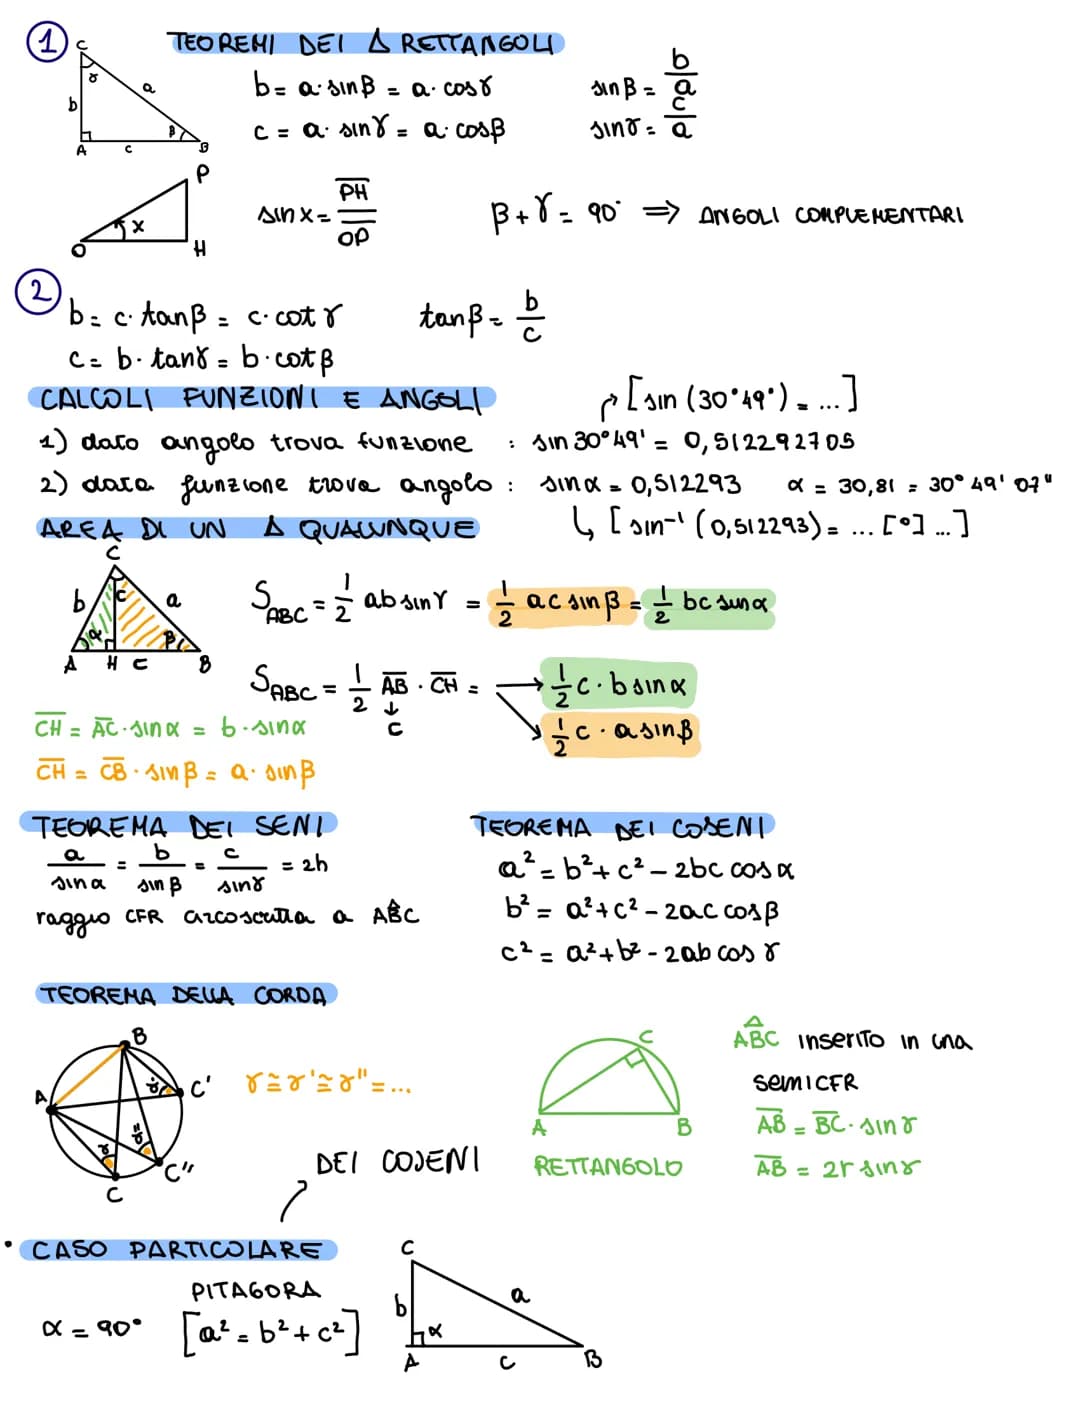 1 TEOREMI DEI Δ RETTANGOLI
C
γ
a
b
β
A c B
b = a·sinβ = a·cosγ
sinβ = b/a
c = a·sinγ = a·cosβ
sinγ = c/a
P
x
O H
sinx = PH/OP
β+γ = 90° ⇒ ANGOLI COMPLEMENTARI
2
b = c·tanβ = c·cotγ
tanβ = b/c
c = b·tanγ = b·cotβ
CALCOLI FUNZIONI E ANGOLI
[sin (30°49°) = ...]
1) dato angolo trova funzione : sin 30°49' = 0,512292705
2) data funzione trova angolo : sinα = 0,512293 α = 30,81 = 30° 49' 07"
AREA DI UN Δ QUALUNQUE
↳ [sin⁻¹ (0,512293) = ... [°] ...]
C
b C a
α β
A H c B
S_ABC = 1/2 ab sinγ = 1/2 ac sinβ = 1/2 bc sinα
S_ABC = 1/2 AB · CH = → 1/2 c · b sinα
↓
c
1/2 c · a sinβ
CH = AC·sinα = b·sinα
CH = CB·sinβ = a·sinβ
TEOREMA DEI SENI
a/sinα = b/sinβ = c/sinγ = 2h
raggio CFR circoscritta a ABC
TEOREMA DEI COSENI
a² = b² + c² - 2bc cosα
b² = a² + c² - 2ac cosβ
c² = a² + b² - 2ab cosγ
TEOREMA DELLA CORDA
B
A
γ' C'
γ γ''
C''
C
γ ≅ γ' ≅ γ'' = ...
C
A B
RETTANGOLO
ABC inserito in una
SEMICFR
AB = BC·sinγ
AB = 2r sinγ
DEI COSENI
• CASO PARTICOLARE
PITAGORA
α = 90° [a² = b² + c²]
C
b a
α
A c B